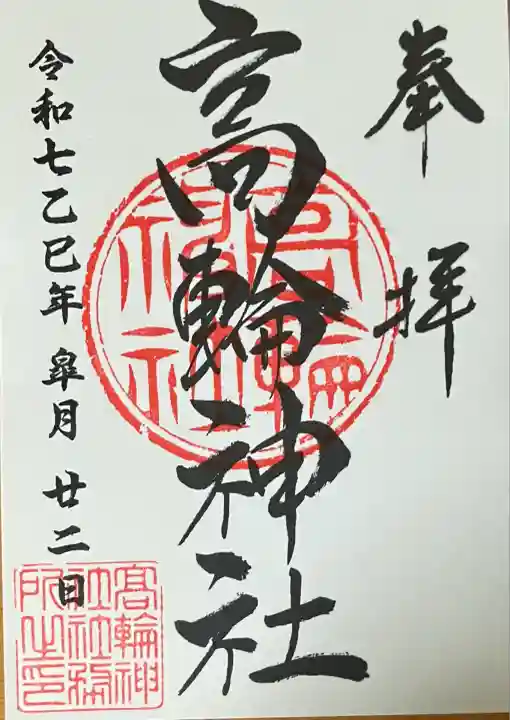 奉拝
高輪神社
高輪神社
令和七乙巳年 皐月 廿二日
高輪神社社務所之印